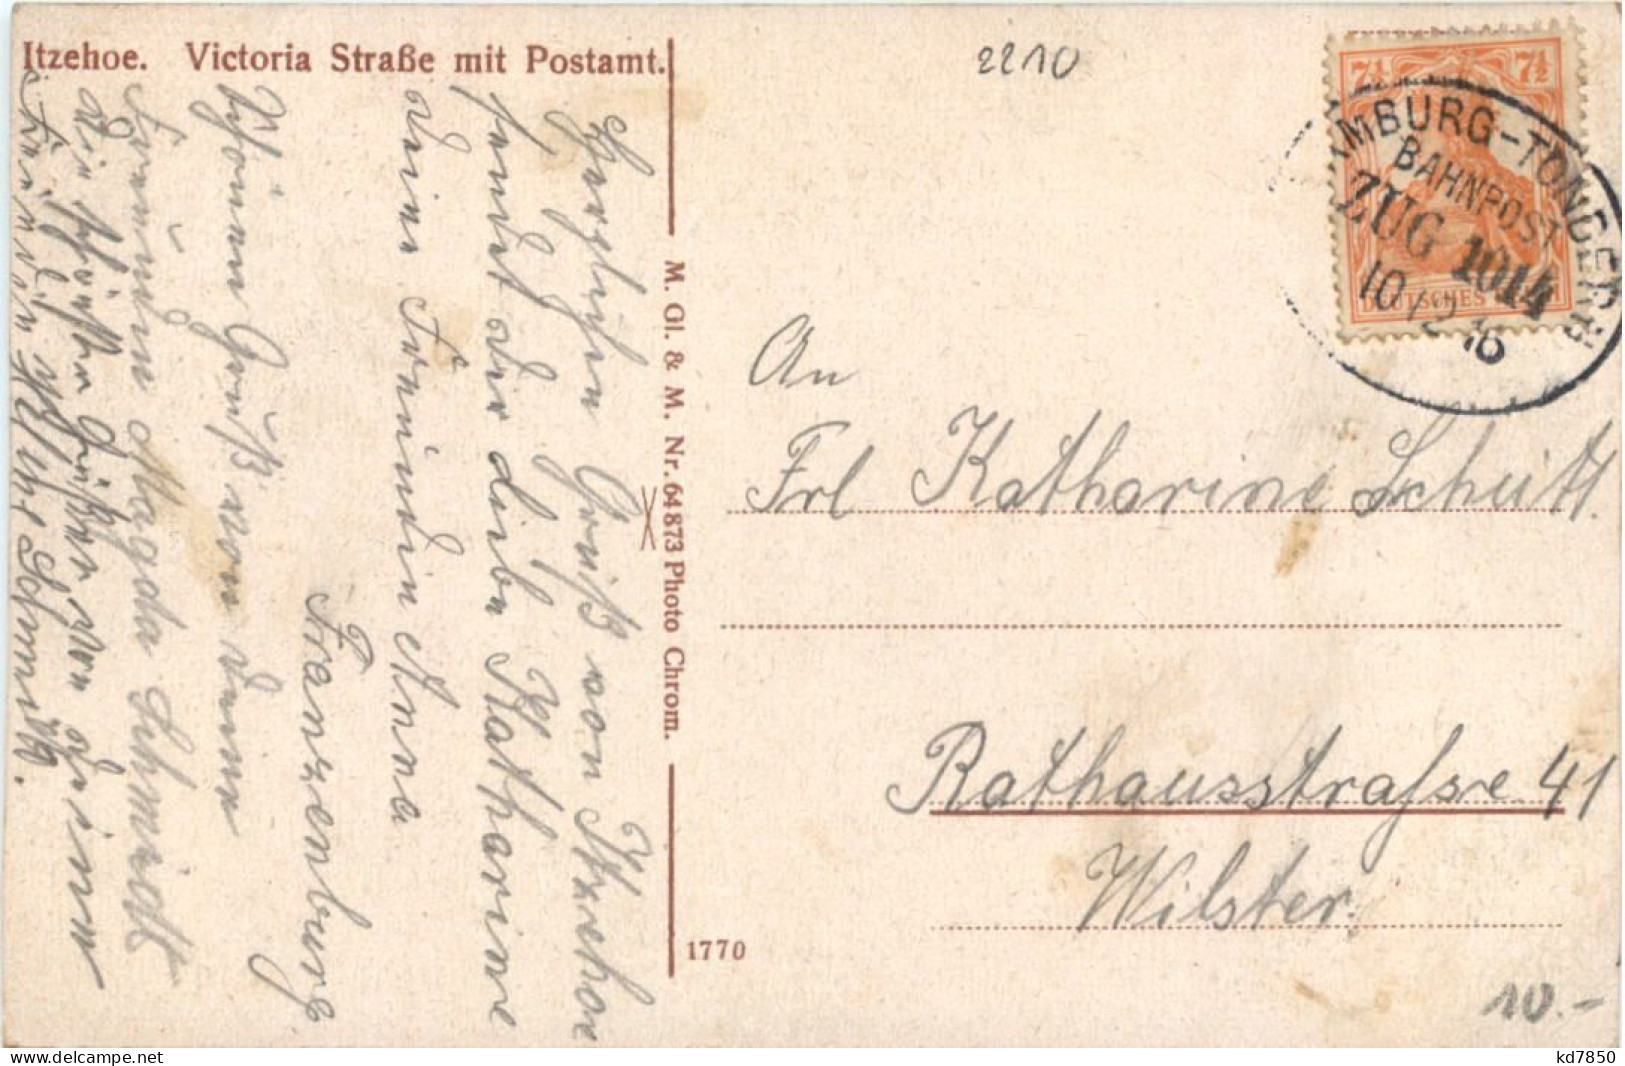 Itzehoe. Victoria Straße mit Postamt.
2210
7½ 7½
DEUTSCHES
HAMBURG-TONDERN
BAHNPOST
ZUG 1014
10 12 16
Herzlichen Gruß von Itzehoe
sendet dir liebe Katharine
deine Freundin Anna
Franzenburg
Schönen Gruß von deiner
Freundin Magda Schmidt
die schönsten Grüße von deiner
Freundin
M. Gl. & M. Nr. 64873 Photo Chrom.
1770
An
Frl Katharine Schütt.
Rathausstrafsse 41
Wilster.
10.-
www.delcampe.net
kd7850